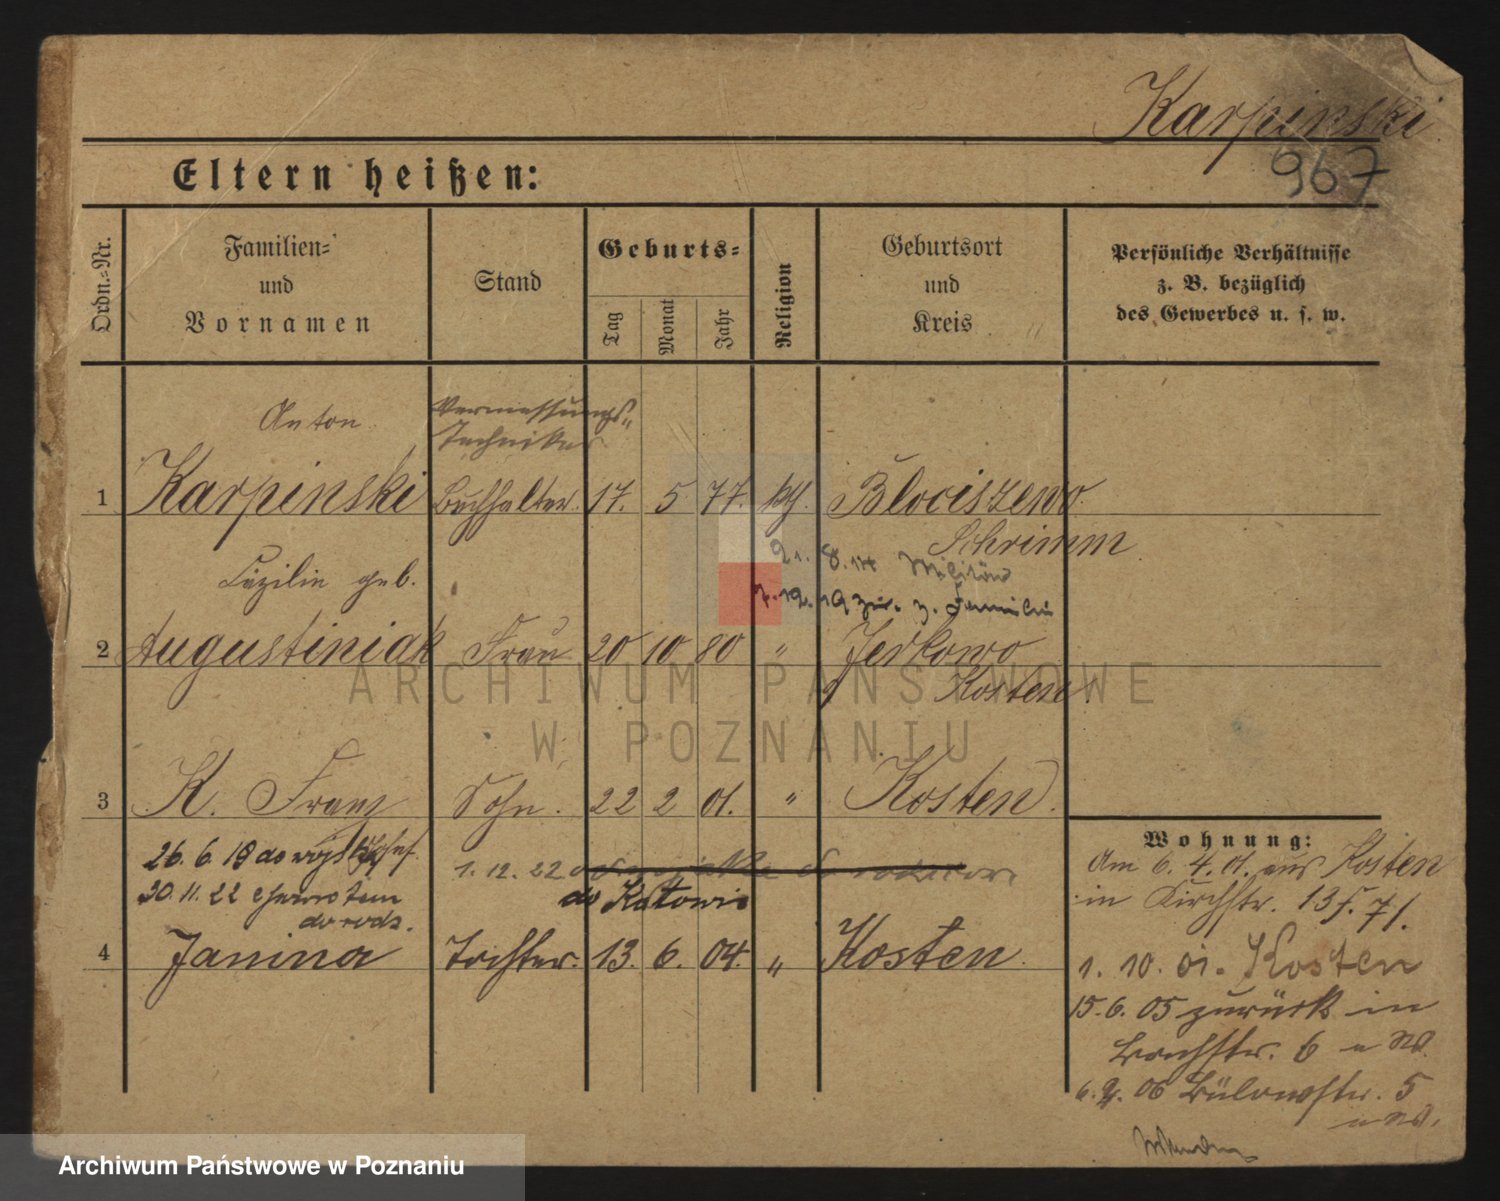 Karpinski
967
Eltern heißen:
Ordn.-Nr.
Familien-
und
Vornamen
Stand
Geburts-
Tag
Monat
Jahr
Religion
Geburtsort
und
Kreis
Persönliche Verhältnisse
z. B. bezüglich
des Gewerbes u. s. w.
Anton
Vermessungs-
Techniker
1 Karpinski Buchhalter. 17. 5 77. kth. Blociszewo
Schrimm
21. 8. 14 Militär
7. 12. 19 zur. z. Familie
Cäzilie geb.
2 Augustiniak Frau 20 10 80 " Jerkowo
Kosten.
3 K. Franz Sohn. 22 2 01. " Kosten.
26. 6. 18 do wojska
1. 12. 22
30. 11. 22
do Katowic
do rodz.
4 Janina Tochter. 13. 6. 04. " Kosten.
Wohnung:
Am 6. 4. 01. aus Kosten
in Kirchstr. 13
1. 10. 01. Kosten
15. 6. 05 zurück in
6
06 Bülowstr. 5
ARCHIWUM PAŃSTWOWE
W POZNANIU
Archiwum Państwowe w Poznaniu